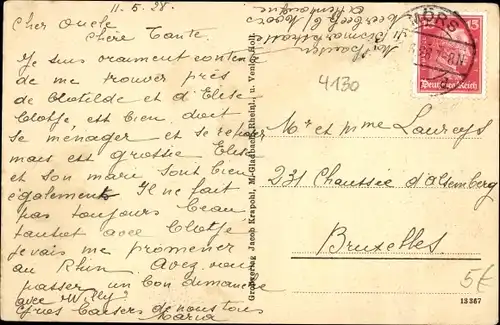 11.5.28.
Cher Oncle
Chère Tante.
Je suis vraiment conten
de me trouver près
de Clotilde et d'Elise
Clotje est bien doit
se ménager et se reposer
mais est grossie Elise
et son mari sont bien
également Il ne fait
pas toujours beau
tantot avec Clotje
je vais me promener
au Rhin. Avez vous
passer un bon dimanche
avec Willy
de nous tous
Maria
Grossverlag Jacob Krapohl, M.-Gladbach-Rheinl. u. Venlo-Holl.
MÖRS
15
Deutsches Reich
4130
Mr et Mme Laureys
231 Chaussée d'Alsemberg
Bruxelles
5€
13367